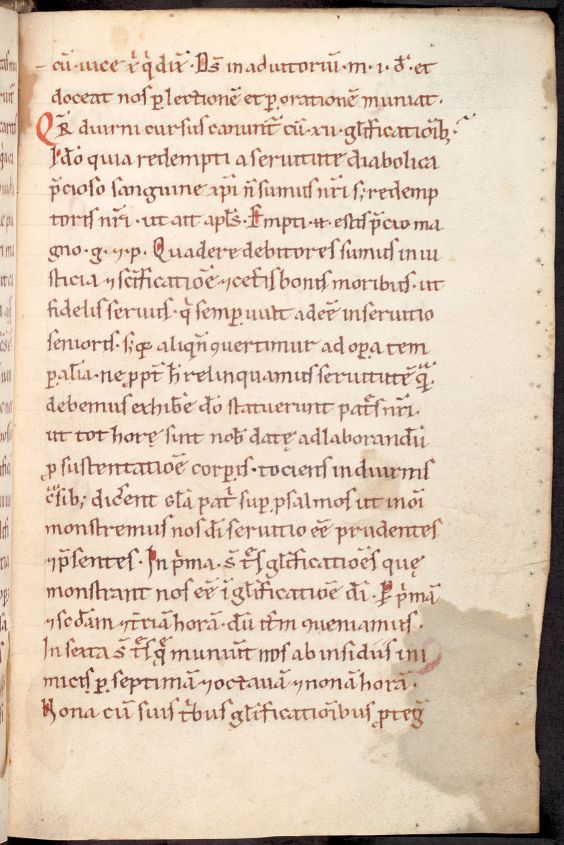 cū uice xp̄i q̄ dix̄. Ds̄ in adiutoriū. m. i. d̄. et
doceat nos p̱ lectionē et p̱ orationē muniat.
Qr̄ diurni cursus canunt̄ cū. xv. gl̄ificationib;.
Ido quia redempti a seruitute diabolica
p̄cioso sanguine xpi n̄ sumus nr̄i s; redemp
toris nr̄i. ut ait apl̄s. Empti .n. estis p̄cio ma
gno. g. ⁊ p. Qua de re debitores sumus in iu
sticia ⁊ sc̄ificatioē ⁊ cet̄is bonis moribus. ut
fidelis seruus. q̄ semp̱ uult adeē in seruitio
senioris. s;
aliqn̄ ꝯuertimur ad op̱a tem
p̱alia. ne ppt̄ h̄ relinquamus seruitutē q̄.
debemus exhib̄e dō statuerunt pat̄s nr̄i.
ut tot horę sint nob̄ datę ad laborandū
ꝓ sustentatioē corp̱is. tociens in diurnis
dic̄ent gl̄a pat̄ sup̱ psalmos ut in oī
monstremus nos dī seruitio eē prudentes
⁊ p̄sentes. In p̄ma. s̄ t̄s gl̄ificatiōes quę
monstrant nos eē ī gl̄ificatioē dī. P̱ p̄mā
⁊ sc̄dam ⁊ t̄ciā horā. dū it̄m ꝯueniamus.
In sexta s̄ t̄s q̄ muniūt nos ab insidiis ini
micis p̱ septimā ⁊ octauā ⁊ nonā horā.
Nona cū suis t̄bus gl̄ificatiōibus ꝓteḡ